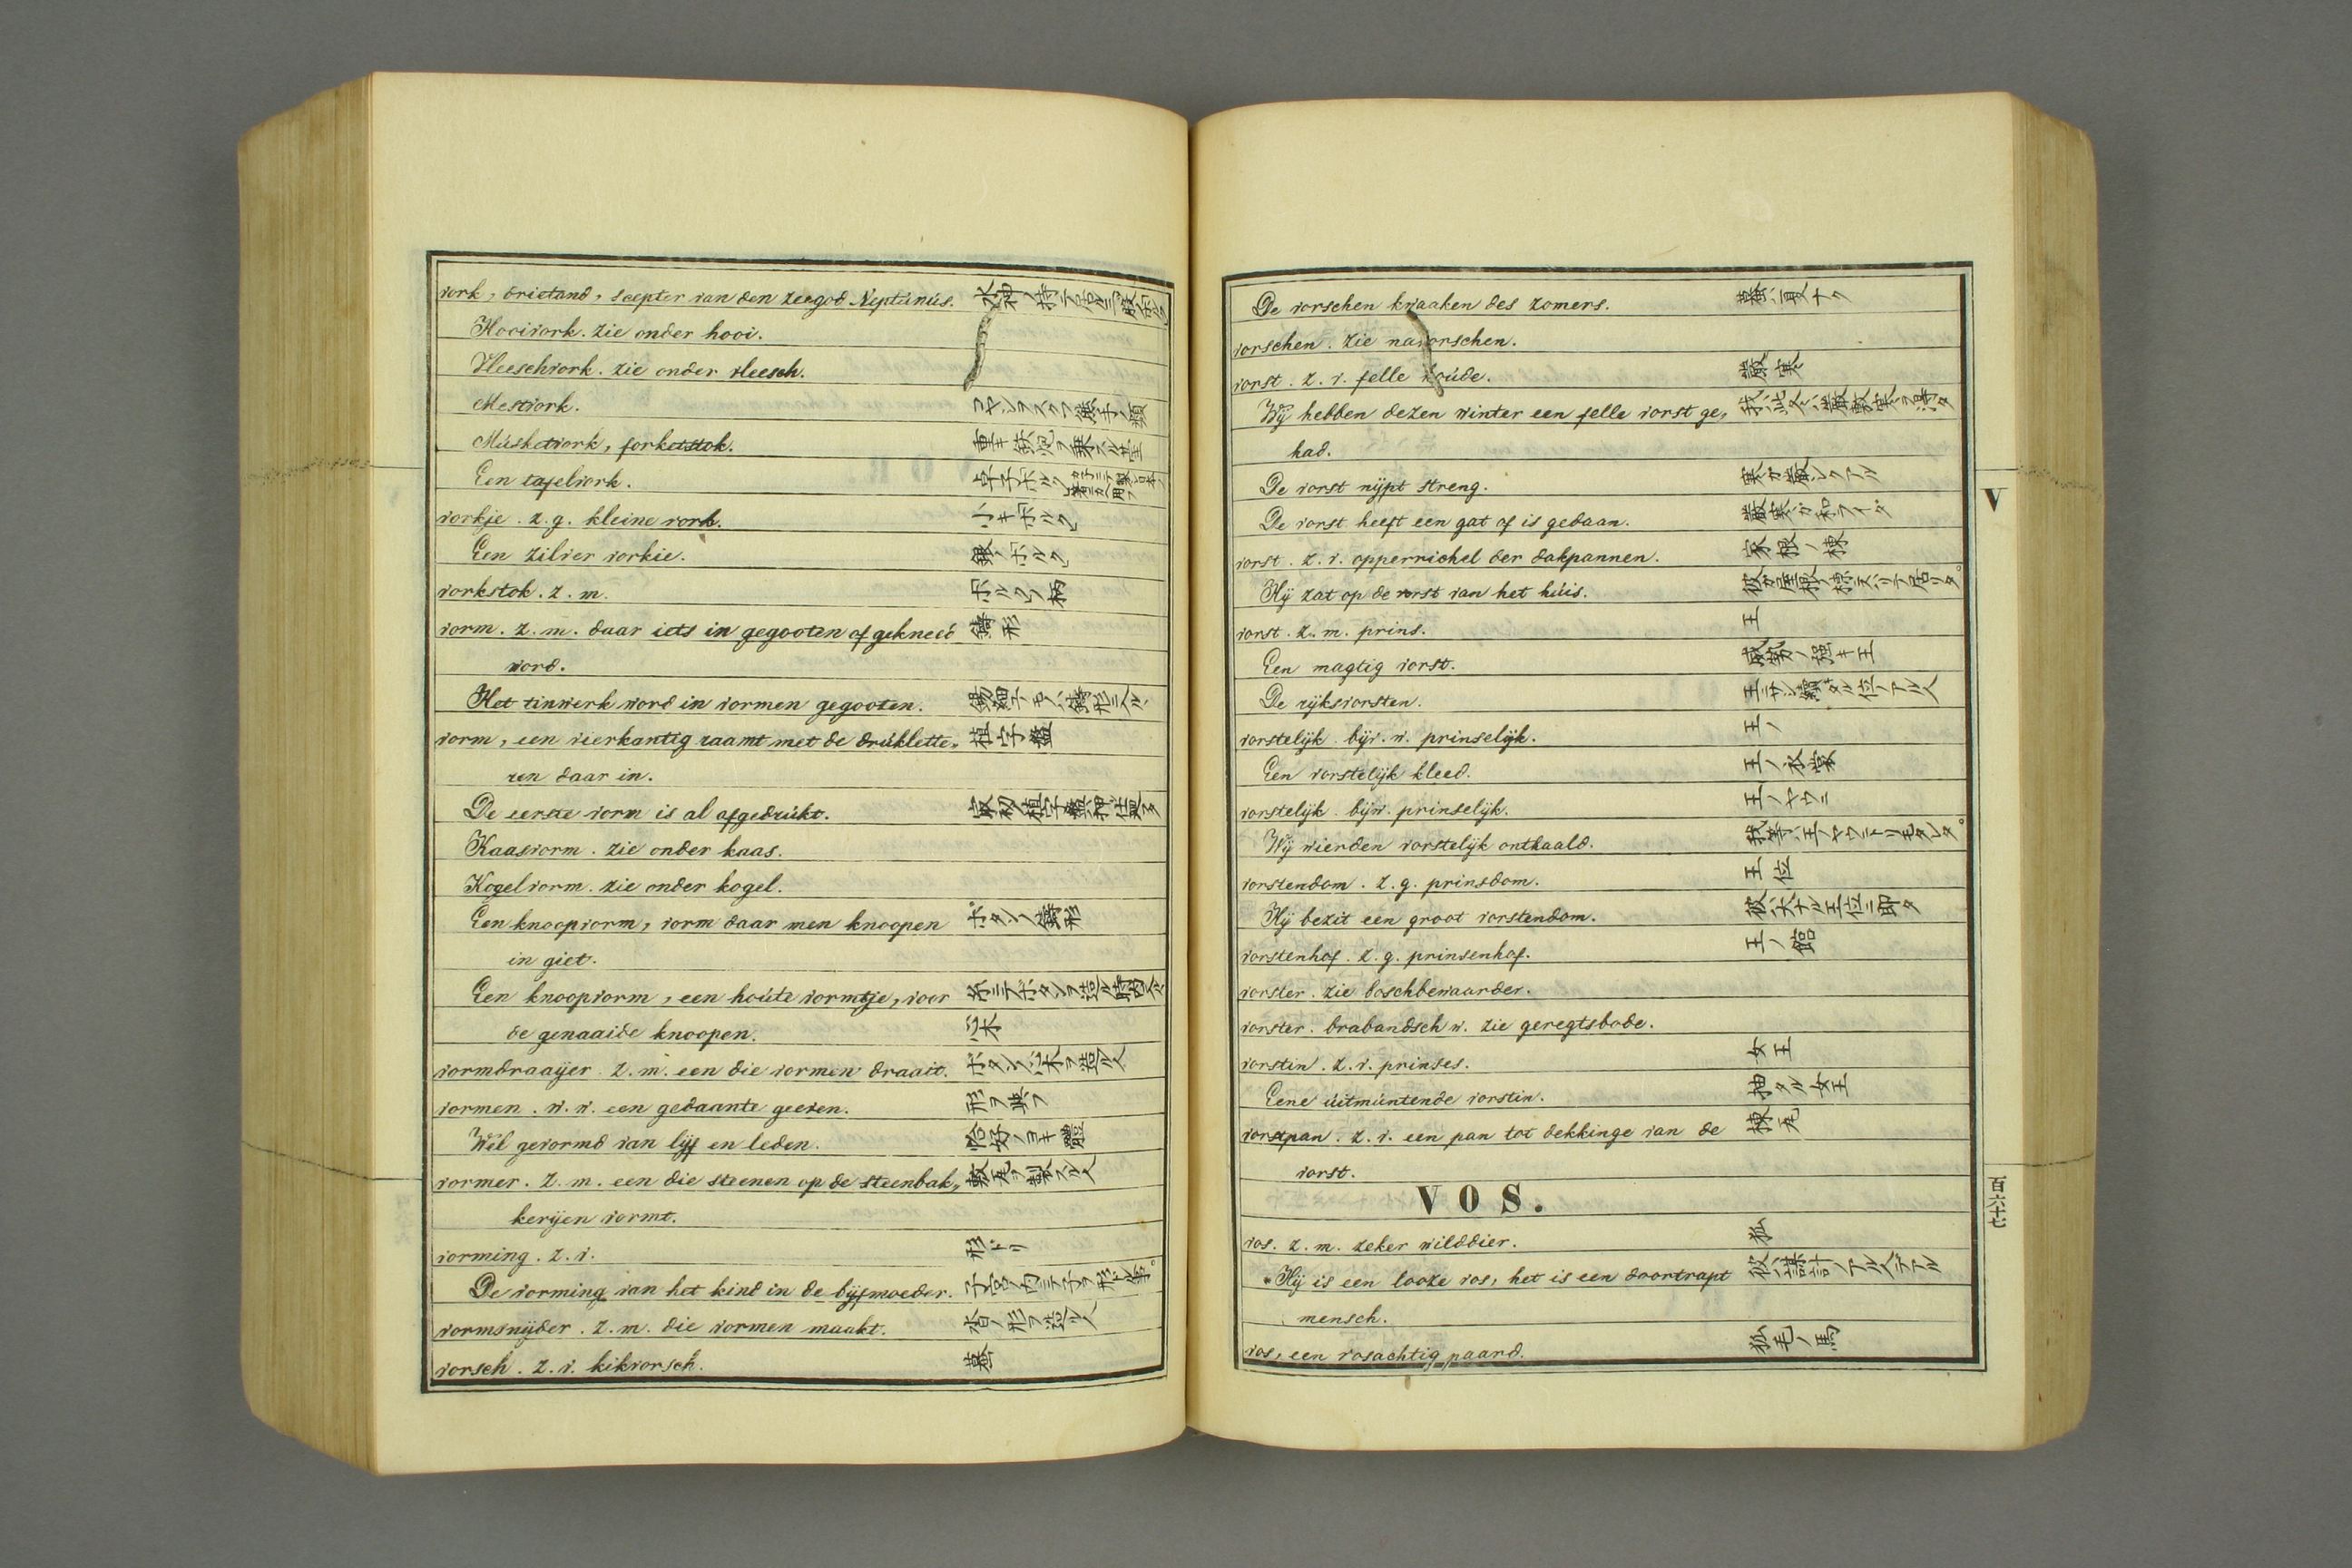 vork, drietand, scepter van den zeegod Neptúnús. 水神ノ持テ居ル三股ホルク
Hooivork. zie onder hooi.
Vleeschvork. zie onder vleesch.
Mestvork. コヤシヲスクフ熊手ノ類
Múshetvork, forketstok. 重キ鉄炮ヲ乗スル台
Een tafelvork. 卓子ホルク
vorkje. z. g. kleine vork. 小キホルク
Een zilver vorkie. 銀ノホルク
vorkstok. z. m. ホルクノ柄
vorm. z. m. daar iets in gegooten of gekneed 鋳形
word.
Het tinwerk word in vormen gegooten. 錫細工ノモノハ鋳形ニ入ル
vorm, een vierkantig raamt met de drúklette„ 植字盤
ren daar in.
De eerste vorm is al afgedrúkt. 最初ノ植字盤ハ押仕舞タ
Kaasvorm. zie onder kaas.
Kogelvorm. zie onder kogel.
Een knoopvorm, vorm daar men knoopen ボタンノ鋳形
in giet.
Een knoopvorm, een hoúte vormtje, voor 糸ニテボタンヲ造ル時ニ入ル
de genaaide knoopen. 心木
vormdraaijer. z. m. een die vormen draait. ボタンノ心木ヲ造ル人
vormen. w. w. een gedaante geeven. 形ヲ與フ
Wél gevormd van lijf en leden. 恰好ノヨキ體
vormer. z. m. een die steenen op de steenbak„ 敷瓦ヲ製スル人
kerijen vormt.
vorming. z. v. 形ドリ
De vorming van het kind in de lijfmoeder. 子宮ノ内ニテ子ヲ形ドル事。
vormsnijder. z. m. die vormen maakt. 沓ノ形ヲ造ル人
vorsch. z. v. kikvorsch. 蟇
De vorschen kwaaken des zomers. 蟇ハ夏ナク
vorschen. zie navorschen.
vorst. z. v. felle koúde. 嚴寒
Wij hebben dezen winter een felle vorst ge„ 我ハ此冬ハ嚴敷寒ヲ得タ
had.
De vorst nijpt streng. 寒ガ嚴シクアル
De vorst heeft een gat of is gedaan. 嚴寒ガ和ライダ
vorst. z. v. opperrichel der dakpannen. 家根ノ棟
Hij zat op de vorst van het húis. 彼ガ屋根ノ棟ニスハリテ居リタ。
vorst. z. m. prins. 王
Een magtig vorst. 威勢ノ強キ王
De rijksvorsten. 王ニ一ツ續キタル位ノアル人
vorstelijk. bijv. w. prinselijk. 王ノ
Een vorstelijk kleed. 王ノ衣裳
vorstelijk. bijw. prinselijk. 王ノヤウニ
Wij wierden vorstelijk onthaald. 我等ハ王ノヤウニトリモタレタ。
vorstendom. z. g. prinsdom. 王位
Hij bezit een groot vorstendom. 彼ハ大ナル王位ニ即タ
vorstenhof. z. g. prinsenhof. 王ノ館
vorster. zie boschbewaarder.
vorster. brabandsch w. zie geregtsbode.
vorstin. z. v. prinses. 女王
Eene úitmúntende vorstin. 抽タル女王
vorstpan. z. v. een pan tot dekkinge van de 棟瓦
vorst.
VOS.
vos. z. m. zeker wilddier. 狐
* Hij is een looze vos, het is een doortrapt 彼ハ謀計ノアル人デアル
mensch.
vos, een vosachtig paard. 狐毛ノ馬
V
百六十七